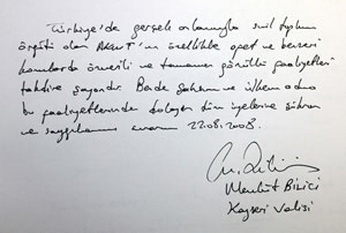 Türkiye'de gerçek anlamıyla sivil toplum
örgütü olan AKUT'un özellikle afet ve benzeri
konularda önemli ve tamamen gönüllü faaliyetleri
takdire şayandır. Bende şahsım ve ülkem adına
bu faaliyetlerinden dolayı tüm üyelerine şükran
ve saygılarımı sunarım 22.08.2008.
Mevlüt Bilici
Kayseri Valisi